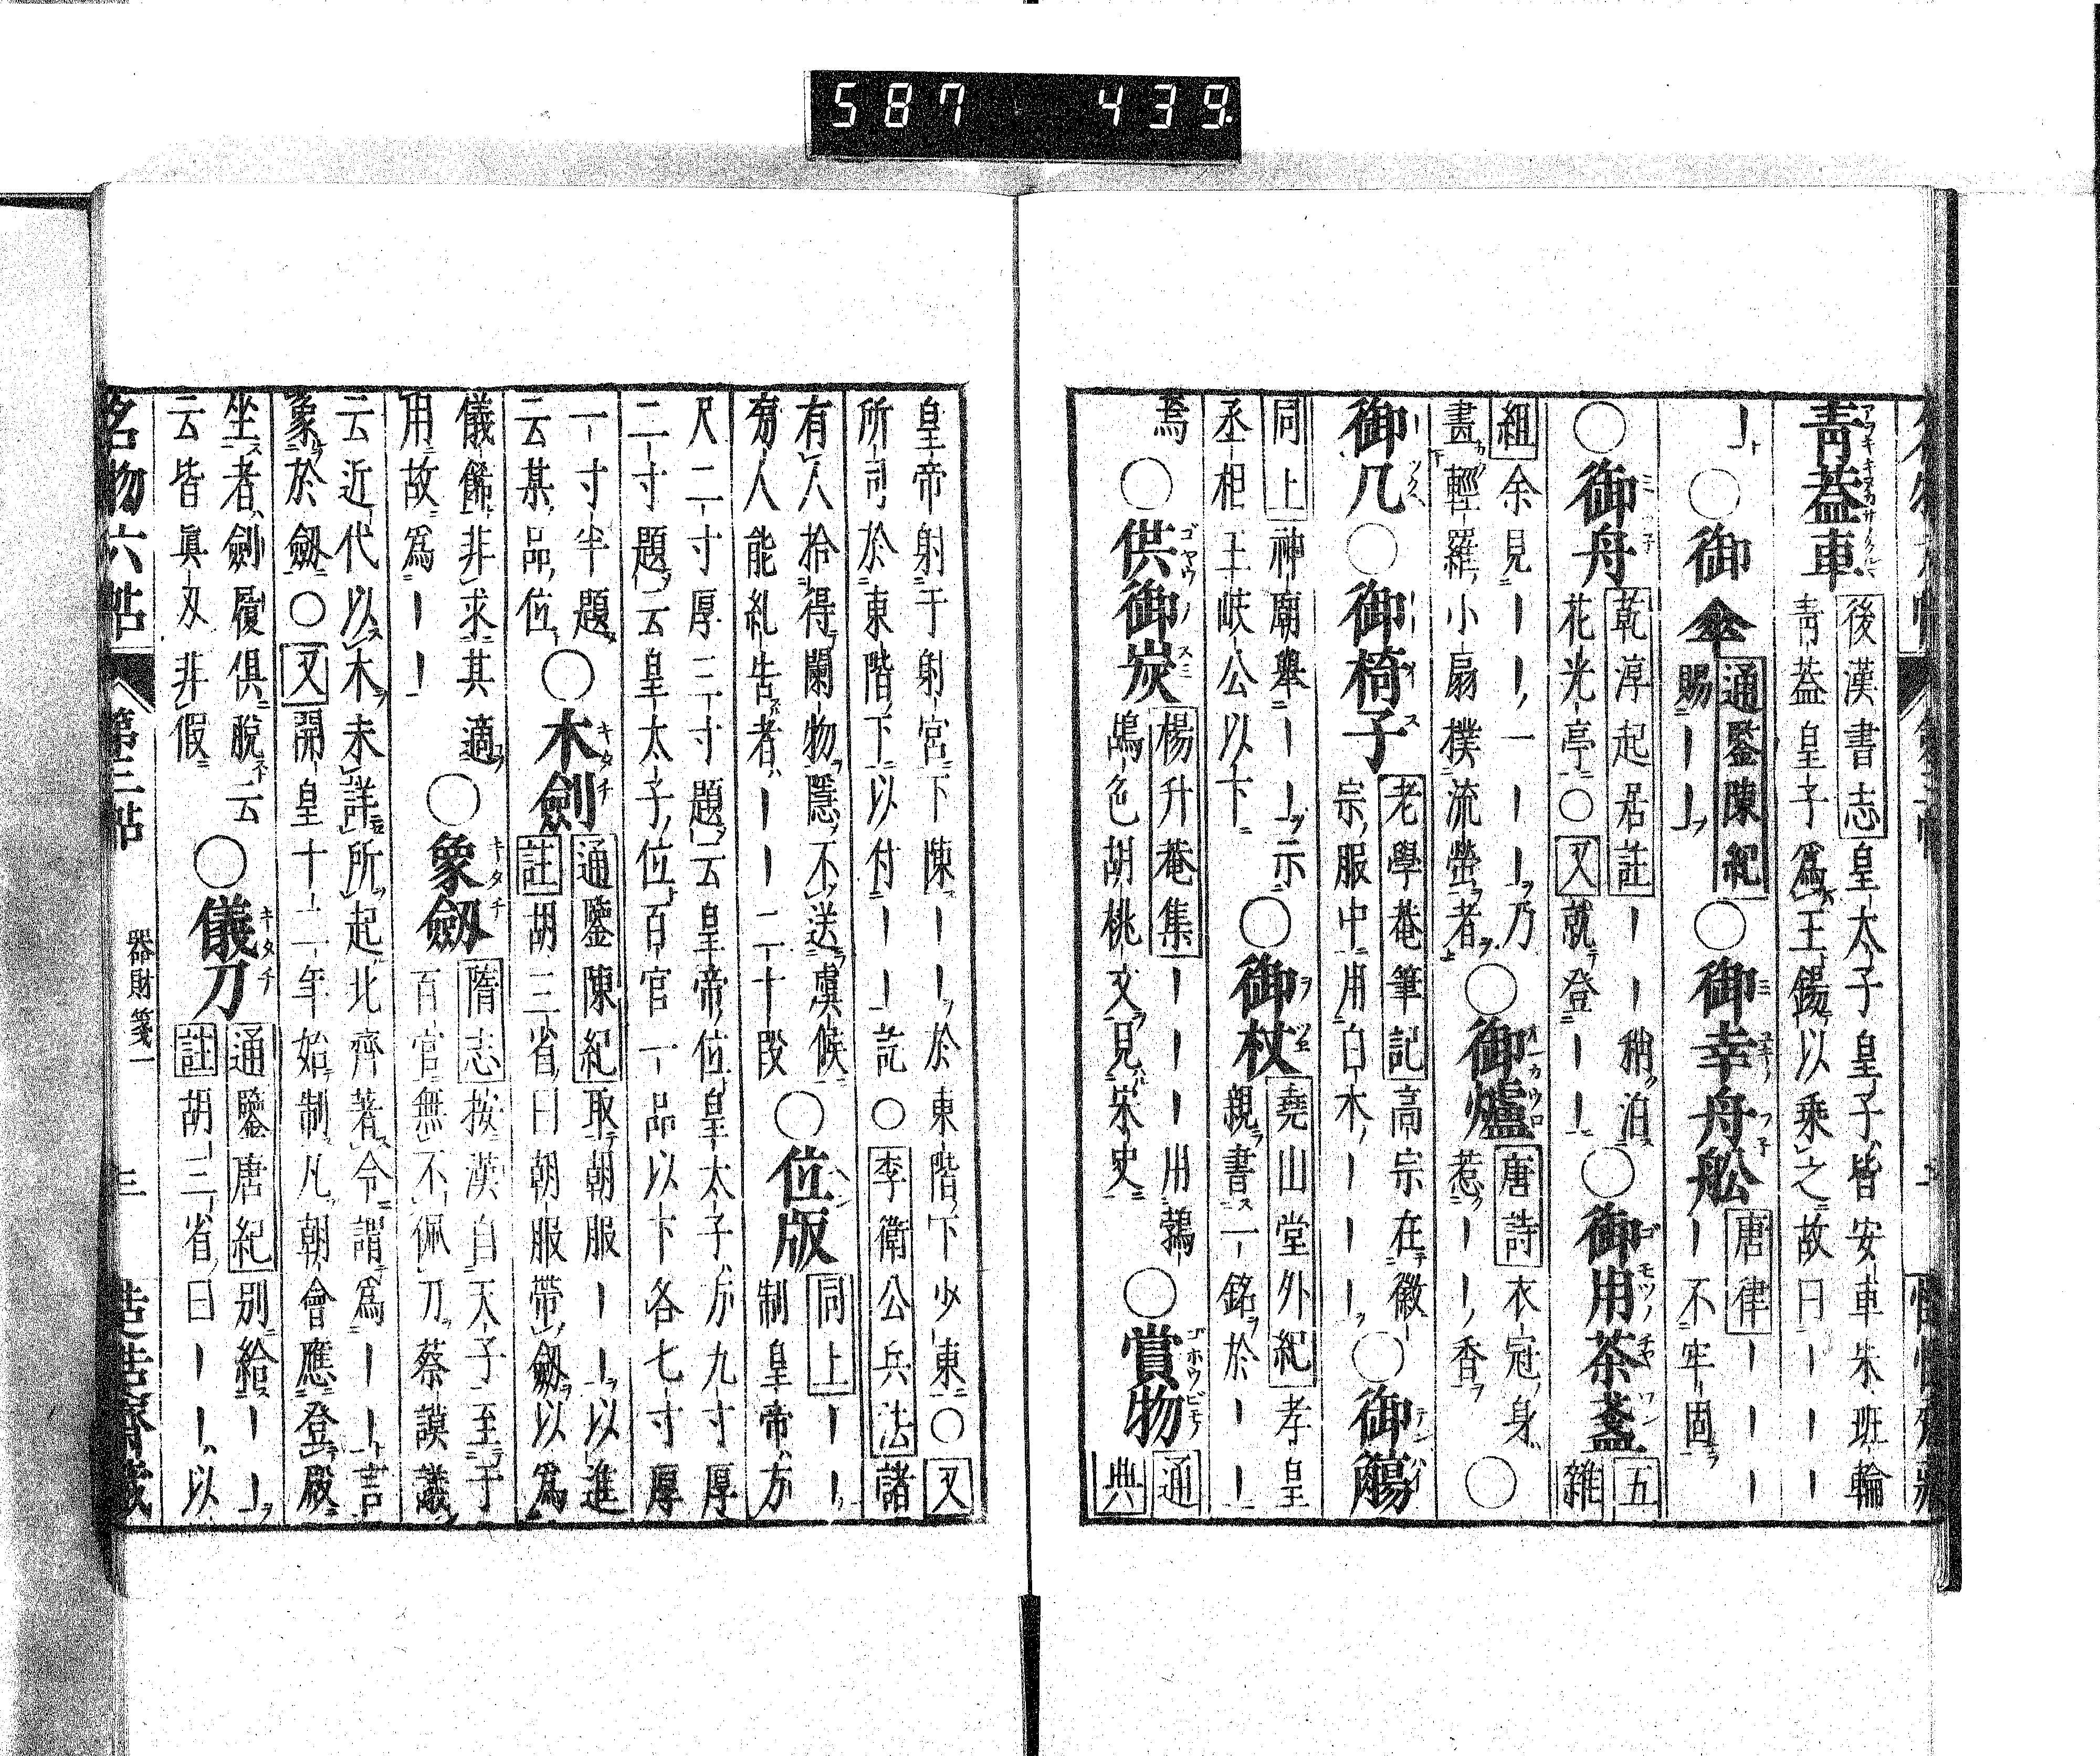 587 439
靑蓋車 後漢書志皇太子皇子皆安車朱班輪
靑蓋皇子爲王錫以乘之故曰｜｜
｜○御傘 通鑒陳紀
賜｜｜
○御幸舟舩 唐律｜｜｜
｜不牢固
○御舟 乾淳起居註｜｜稍泊
花光亭○又就登｜｜
○御用茶盞 五
雜
組余見｜｜一｜｜乃
畫輕羅小扇撲流螢者
○御爐 唐詩衣冠身
惹｜｜香
○
御几○御椅子 老學菴筆記高宗在徽
宗服中用白木｜｜｜
○御觴
同上神廟舉｜｜示
丞相王岐公以下
○御杖 堯山堂外紀孝皇
親書一銘於｜｜
焉
○供御炭 楊升菴集｜｜｜用鶉
鴣色胡桃文見宋史
○賞物 通
典
皇帝射于射宮下陳｜｜於東階下少東○又
所司於東階下以付｜｜訖○李衛公兵法諸
有人拾得闌物隱不送虞候
旁人能糺告者｜｜二十段
○位版 同上｜｜
制皇帝方
尺二寸厚三寸題云皇帝位皇太子方九寸厚
二寸題云皇太子位百官一品以下各七寸厚
一寸半題
云某品位
○木劍 通鑒陳紀取朝服｜｜以進
註胡三省曰朝服帶劔以爲
儀飾非求其適
用故爲｜｜
○象劔 隋志按漢自天子至于
百官無不佩刀蔡謨議
云近代以木未詳所起北齊著令謂爲｜｜言
象於劔○又開皇十二年始制凡朝會應登殿
坐者劍履俱脫云
云皆眞刄非假
○儀刀 通鑒唐紀別給｜｜
註胡三省曰｜｜以
名物六帖 第三帖 器財箋一 三